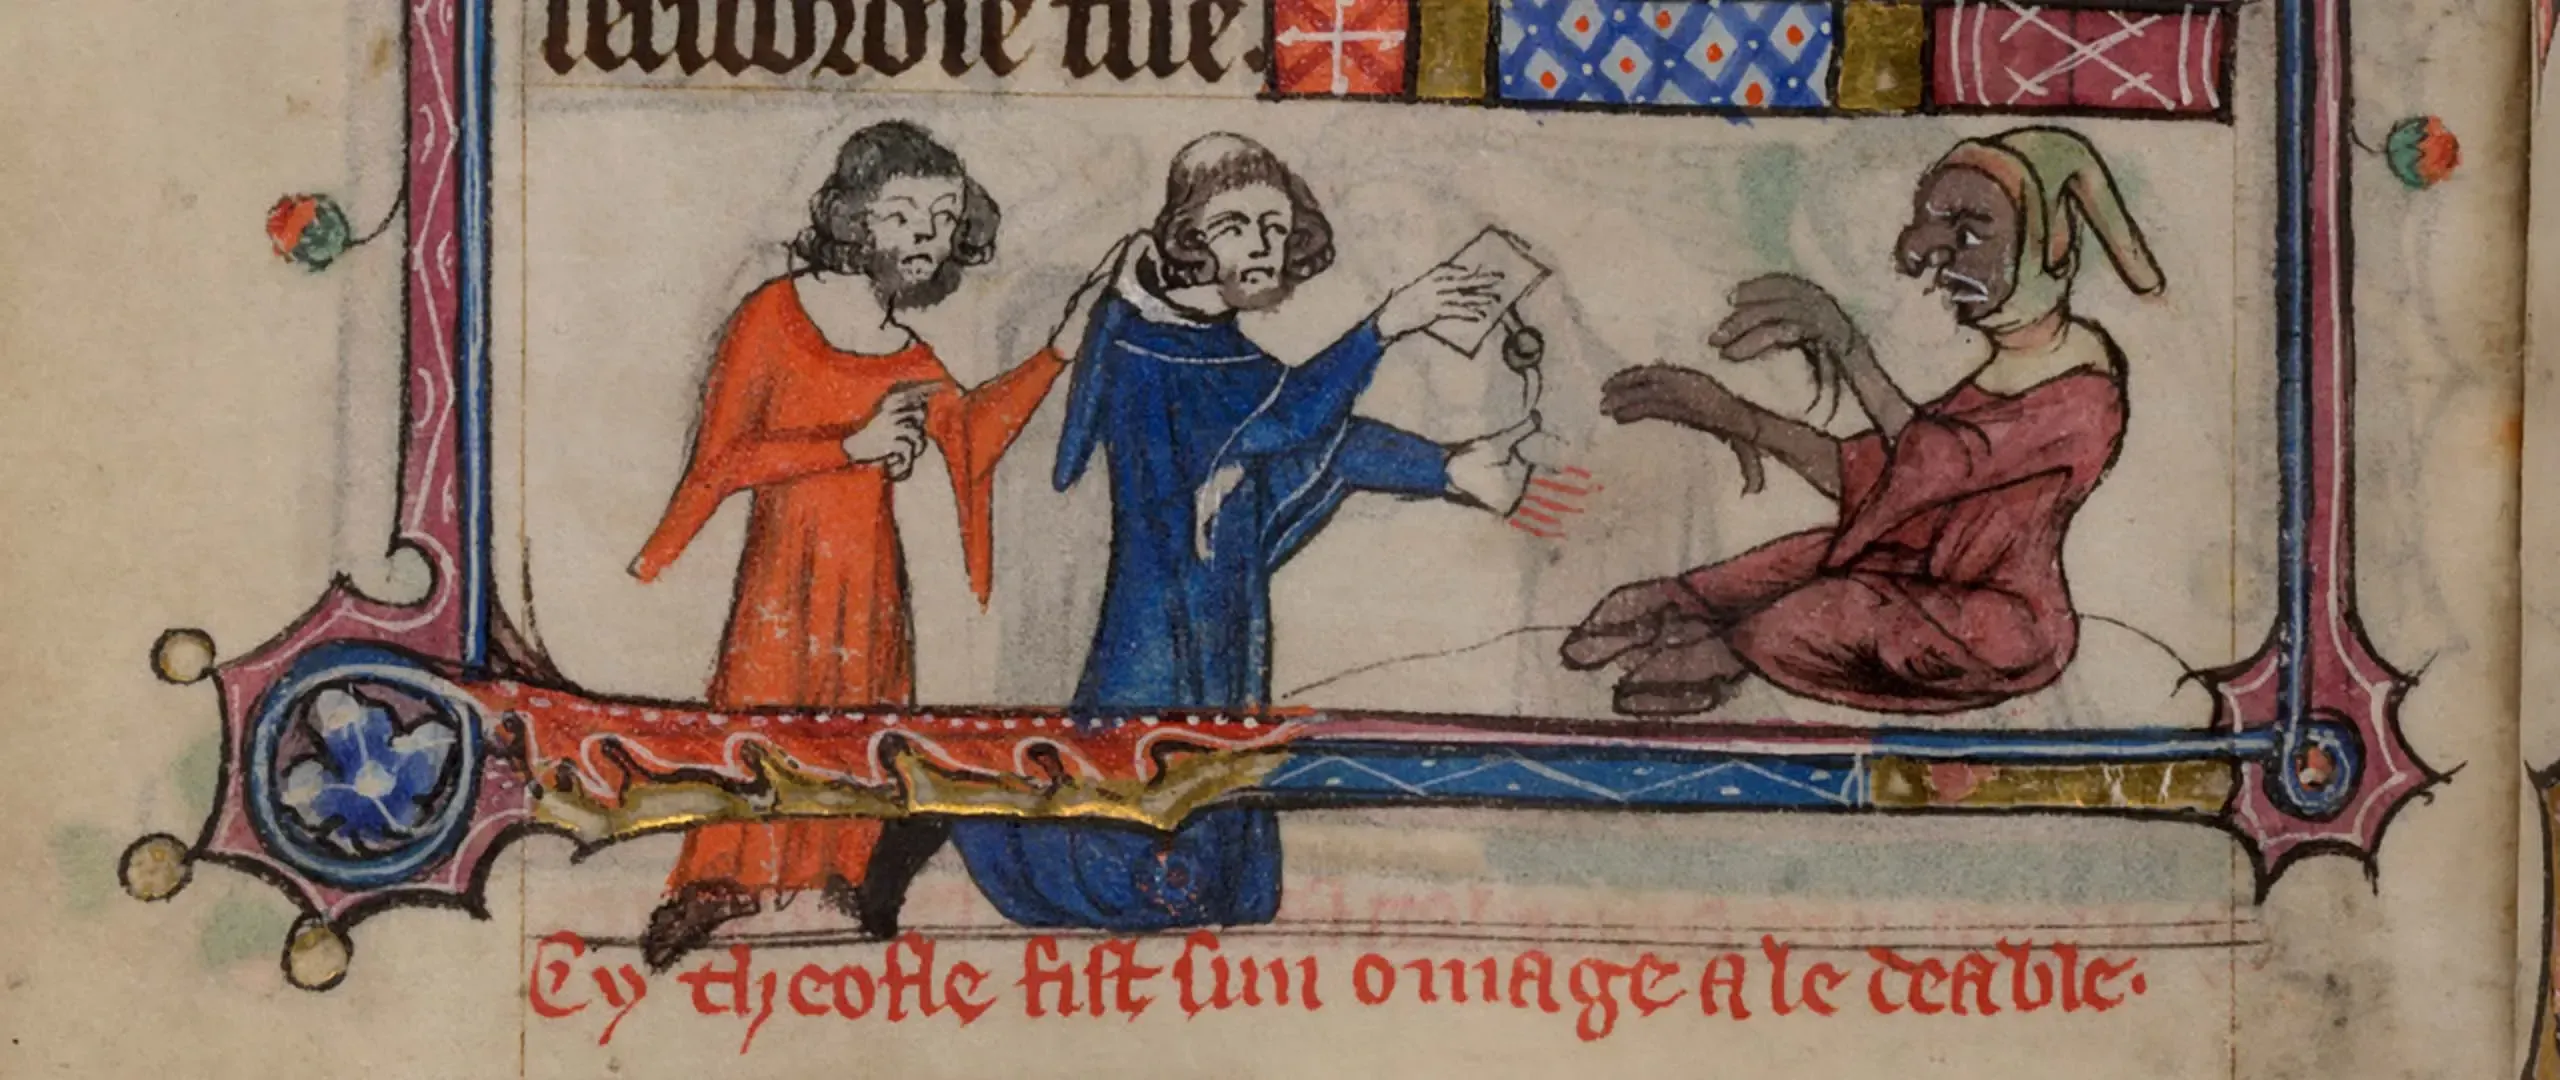 Cy theofle fist sun omage a le deable.